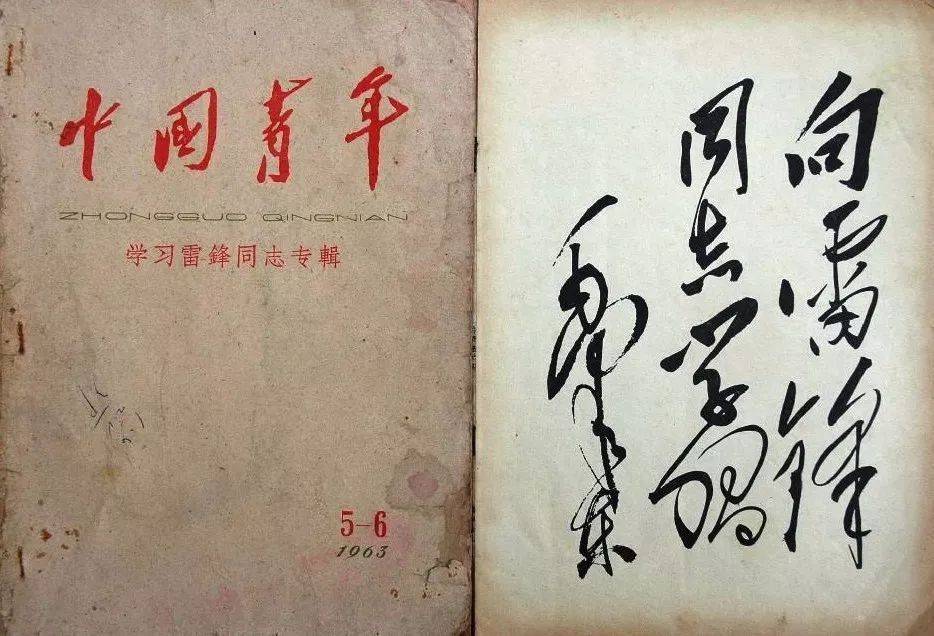 中國青年
ZHONGGUO QINGNIAN
学习雷鋒同志专輯
5-6
1963
向雷锋
同志学习
毛泽东